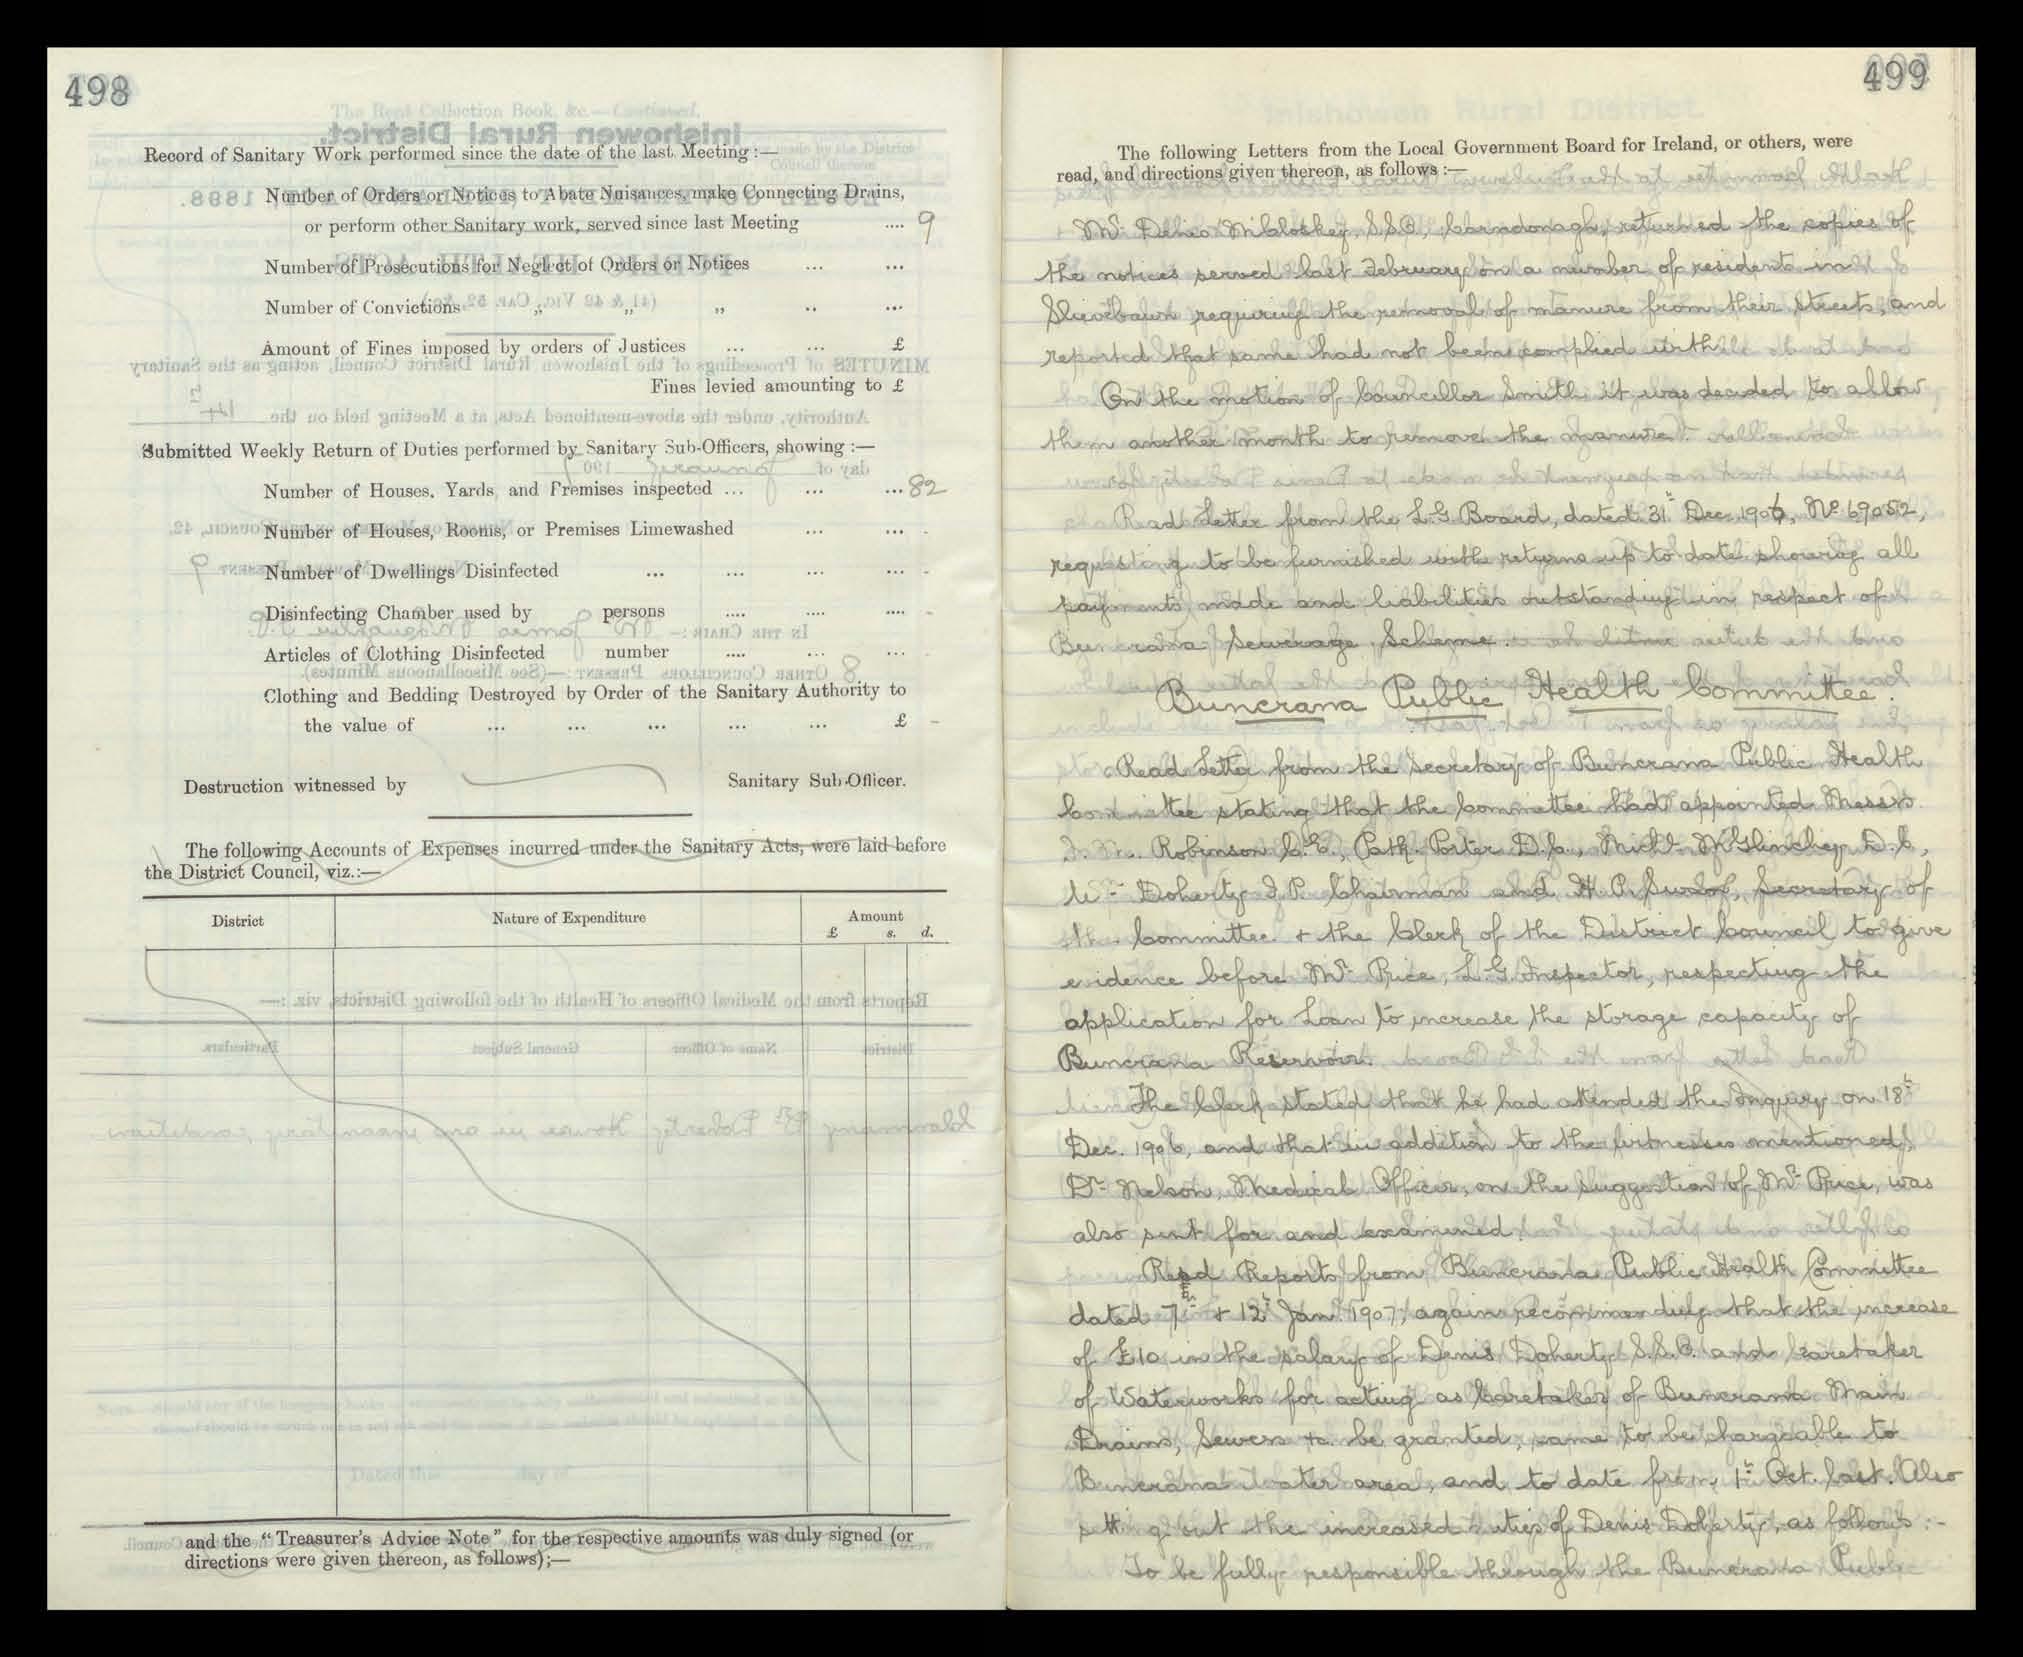 498
Record of Sanitary Work performed since the date of the last Meeting :—
Number of Orders or Notices to Abate Nuisances, make Connecting Drains,
or perform other Sanitary work, served since last Meeting .... 9
Number of Prosecutions for Neglect of Orders or Notices ... ...
Number of Convictions „ „ „ .. ...
Amount of Fines imposed by orders of Justices ... ... £
Fines levied amounting to £
Submitted Weekly Return of Duties performed by Sanitary Sub-Officers, showing :—
Number of Houses, Yards, and Premises inspected ... ... ... 82
Number of Houses, Rooms, or Premises Limewashed ... ... -
Number of Dwellings Disinfected ... ... ... ... -
Disinfecting Chamber used by persons .... .... .... -
Articles of Clothing Disinfected number .... ... ... -
Clothing and Bedding Destroyed by Order of the Sanitary Authority to
the value of ... ... ... ... ... £ -
Destruction witnessed by Sanitary Sub-Officer.
The following Accounts of Expenses incurred under the Sanitary Acts, were laid before
the District Council, viz.:—
District Nature of Expenditure Amount
£ s. d.
and the "Treasurer's Advice Note" for the respective amounts was duly signed (or
directions were given thereon, as follows);—
499
The following Letters from the Local Government Board for Ireland, or others, were
read, and directions given thereon, as follows :—
Mr. Denis McCloskey, S.S.O., Carndonagh, returned the copies of
the notices served last February on a number of residents in
Slievebawn requiring the removal of manure from their streets, and
reported that same had not been complied with.
On the motion of Councillor Smith it was decided to allow
them another month to remove the manure.
Read Letter from the L.G. Board, dated 31st Dec. 1906, No. 69052,
requesting to be furnished with returns up to date showing all
payments made and liabilities outstanding in respect of
Buncrana Sewerage Scheme.
Buncrana Public Health Committee.
Read Letter from the Secretary of Buncrana Public Health
Committee stating that the Committee had appointed Messrs.
Robinson C.E., Patk. Porter D.C., Michl. McGlinchey D.C.,
Doherty J.P. Chairman and H.P. Swan, Secretary of
the Committee + the Clerk of the District Council to give
evidence before Mr. Price, L.G. Inspector, respecting the
application for Loan to increase the storage capacity of
Buncrana Reservoir.
The Clerk stated that he had attended the Inquiry on 18th
Dec. 1906, and that in addition to the witnesses mentioned,
Dr. Nelson, Medical Officer, on the suggestion of Mr. Price, was
also sent for and examined.
Read Reports from Buncrana Public Health Committee
dated 7th + 12th Jan. 1907, again recommending that the increase
of £10 in the salary of Denis Doherty S.S.O. and Caretaker
of Waterworks for acting as Caretaker of Buncrana Main
Drains, Sewers &c. be granted, same to be chargeable to
Buncrana water area, and to date from 1st Oct. last. Also
setting out the increased duties of Denis Doherty, as follows :-
To be fully responsible through the Buncrana Public